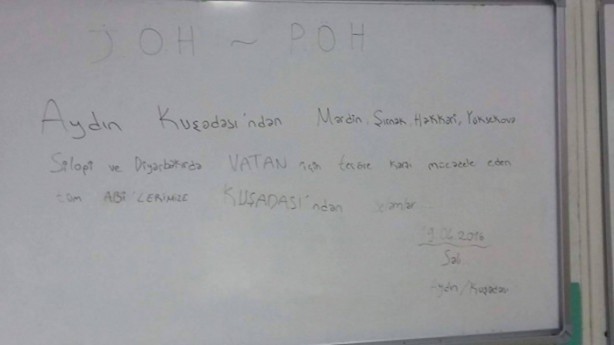 JÖH ~ PÖH
Aydın Kuşadası'ndan Mardin, Şırnak, Hakkari, Yüksekova
Silopi ve Diyarbakırda VATAN için teröre karşı mücadele eden
tüm ABİLERİMİZE KUŞADASI'ndan selamlar
19.04.2016
Salı
Aydın/Kuşadası